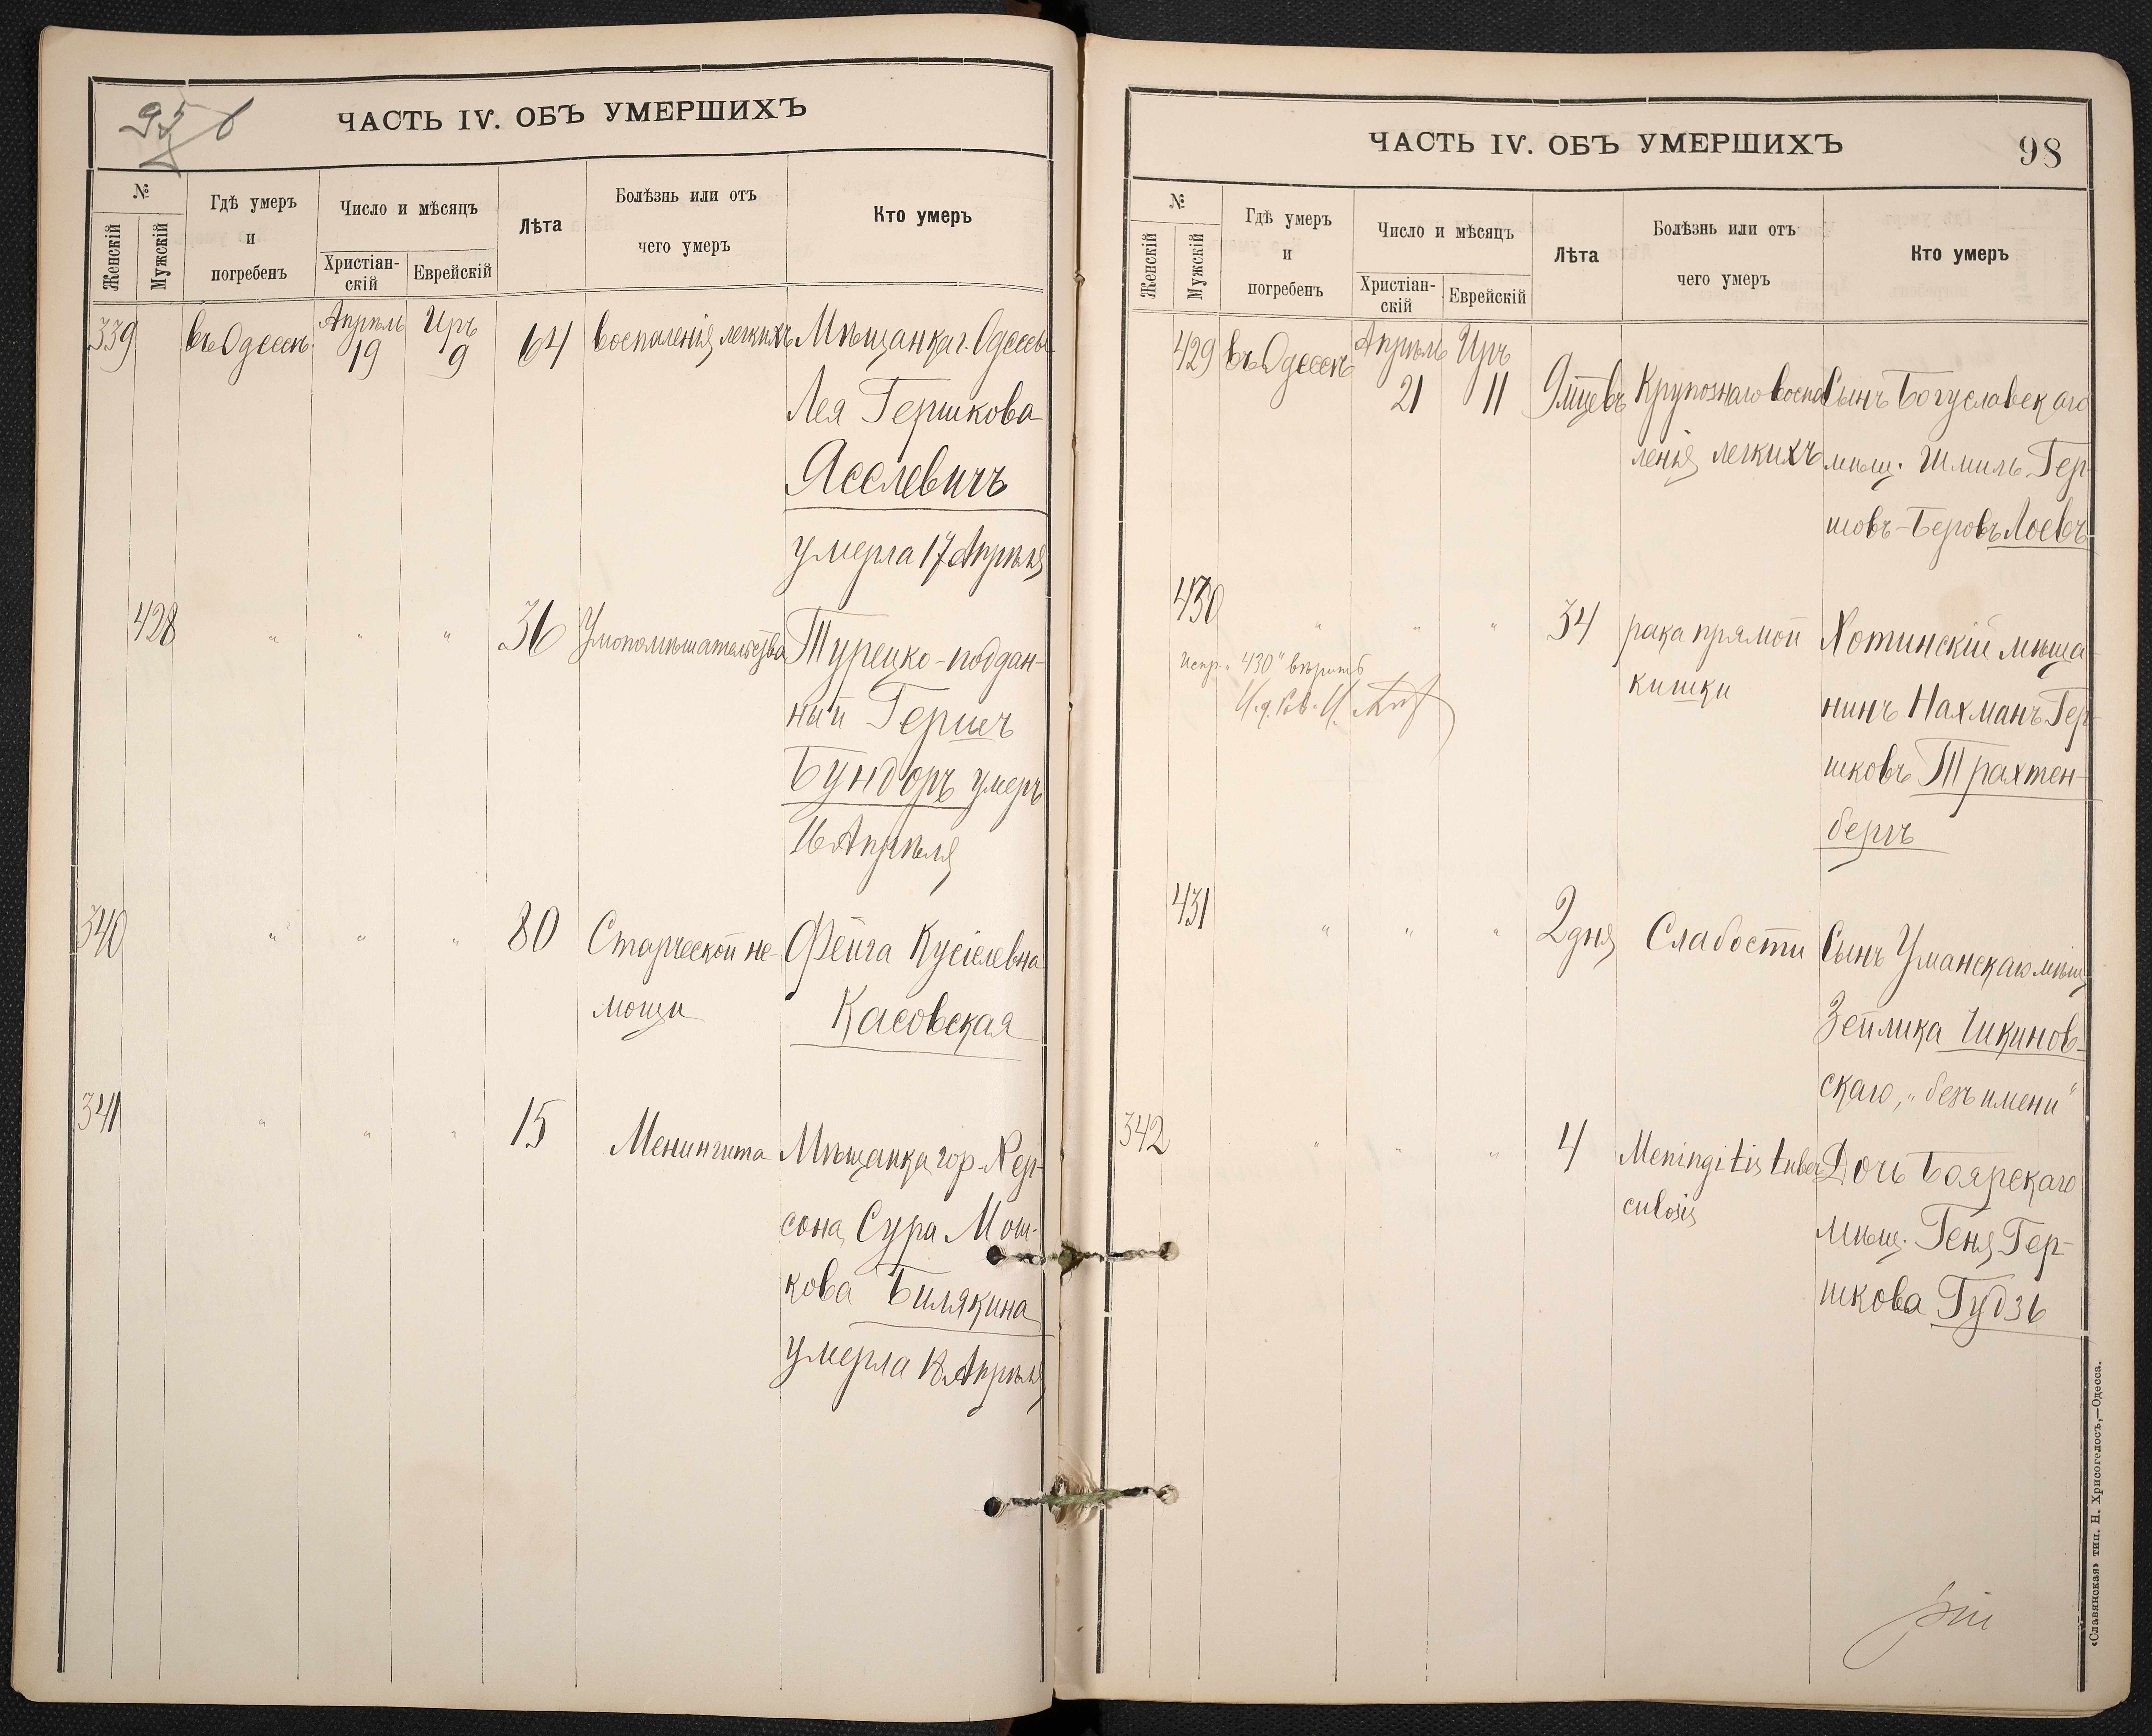 ЧАСТЬ IV. ОБЪ УМЕРШИХЪ
№
Женскій
Мужскій
Гдѣ умеръ
и
погребенъ
Число и мѣсяцъ
Христіан-
скій
Еврейскій
Лѣта
Болѣзнь или отъ
чего умеръ
Кто умеръ
339 въ Одессѣ Апрѣль 19 Иръ 9 64 воспаленія легкихъ Мѣщанка г. Одессы
Лея Гершкова
Яселевичъ
умерла 17 Апрѣля
428 " " " 36 Умопомѣшательства Турецко-поддан-
ный Гершъ
Бундоръ умеръ
16 Апрѣля
340 " " " 80 Старческой не- Фейга Кусіелевна
мощи Касовская
341 " " " 15 Менингита Мѣщанка гор. Хер-
сона Сура Мош-
кова Билякина
умерла 18 Апрѣля
ЧАСТЬ IV. ОБЪ УМЕРШИХЪ
98
№
Женскій
Мужскій
Гдѣ умеръ
и
погребенъ
Число и мѣсяцъ
Христіан-
скій
Еврейскій
Лѣта
Болѣзнь или отъ
чего умеръ
Кто умеръ
429 въ Одессѣ Апрѣль 21 Иръ 11 9 мцевъ Крупознаго воспа Сынъ Богуславскаго
ленія легкихъ мѣщ. Шмиль Гер-
шовъ-Беровъ Лоевъ
430 " " " 34 рака прямой Хотинскій мѣща-
кишки нинъ Нахманъ Гер-
шковъ Трахтен-
бергъ
Испр. „430" вѣрить
И. д. Рав.
431 " " " 2 дня Слабости Сынъ Уманскаго мѣщ
Зейлика Чикинов-
скаго, „безъ имени"
342 " " " 4 Meningitis tuber Дочь Боярскаго
culosis мѣщ. Геня Гер-
шкова Гудзь
«Славянская» тип. Н. Хрисогелосъ,—Одесса.